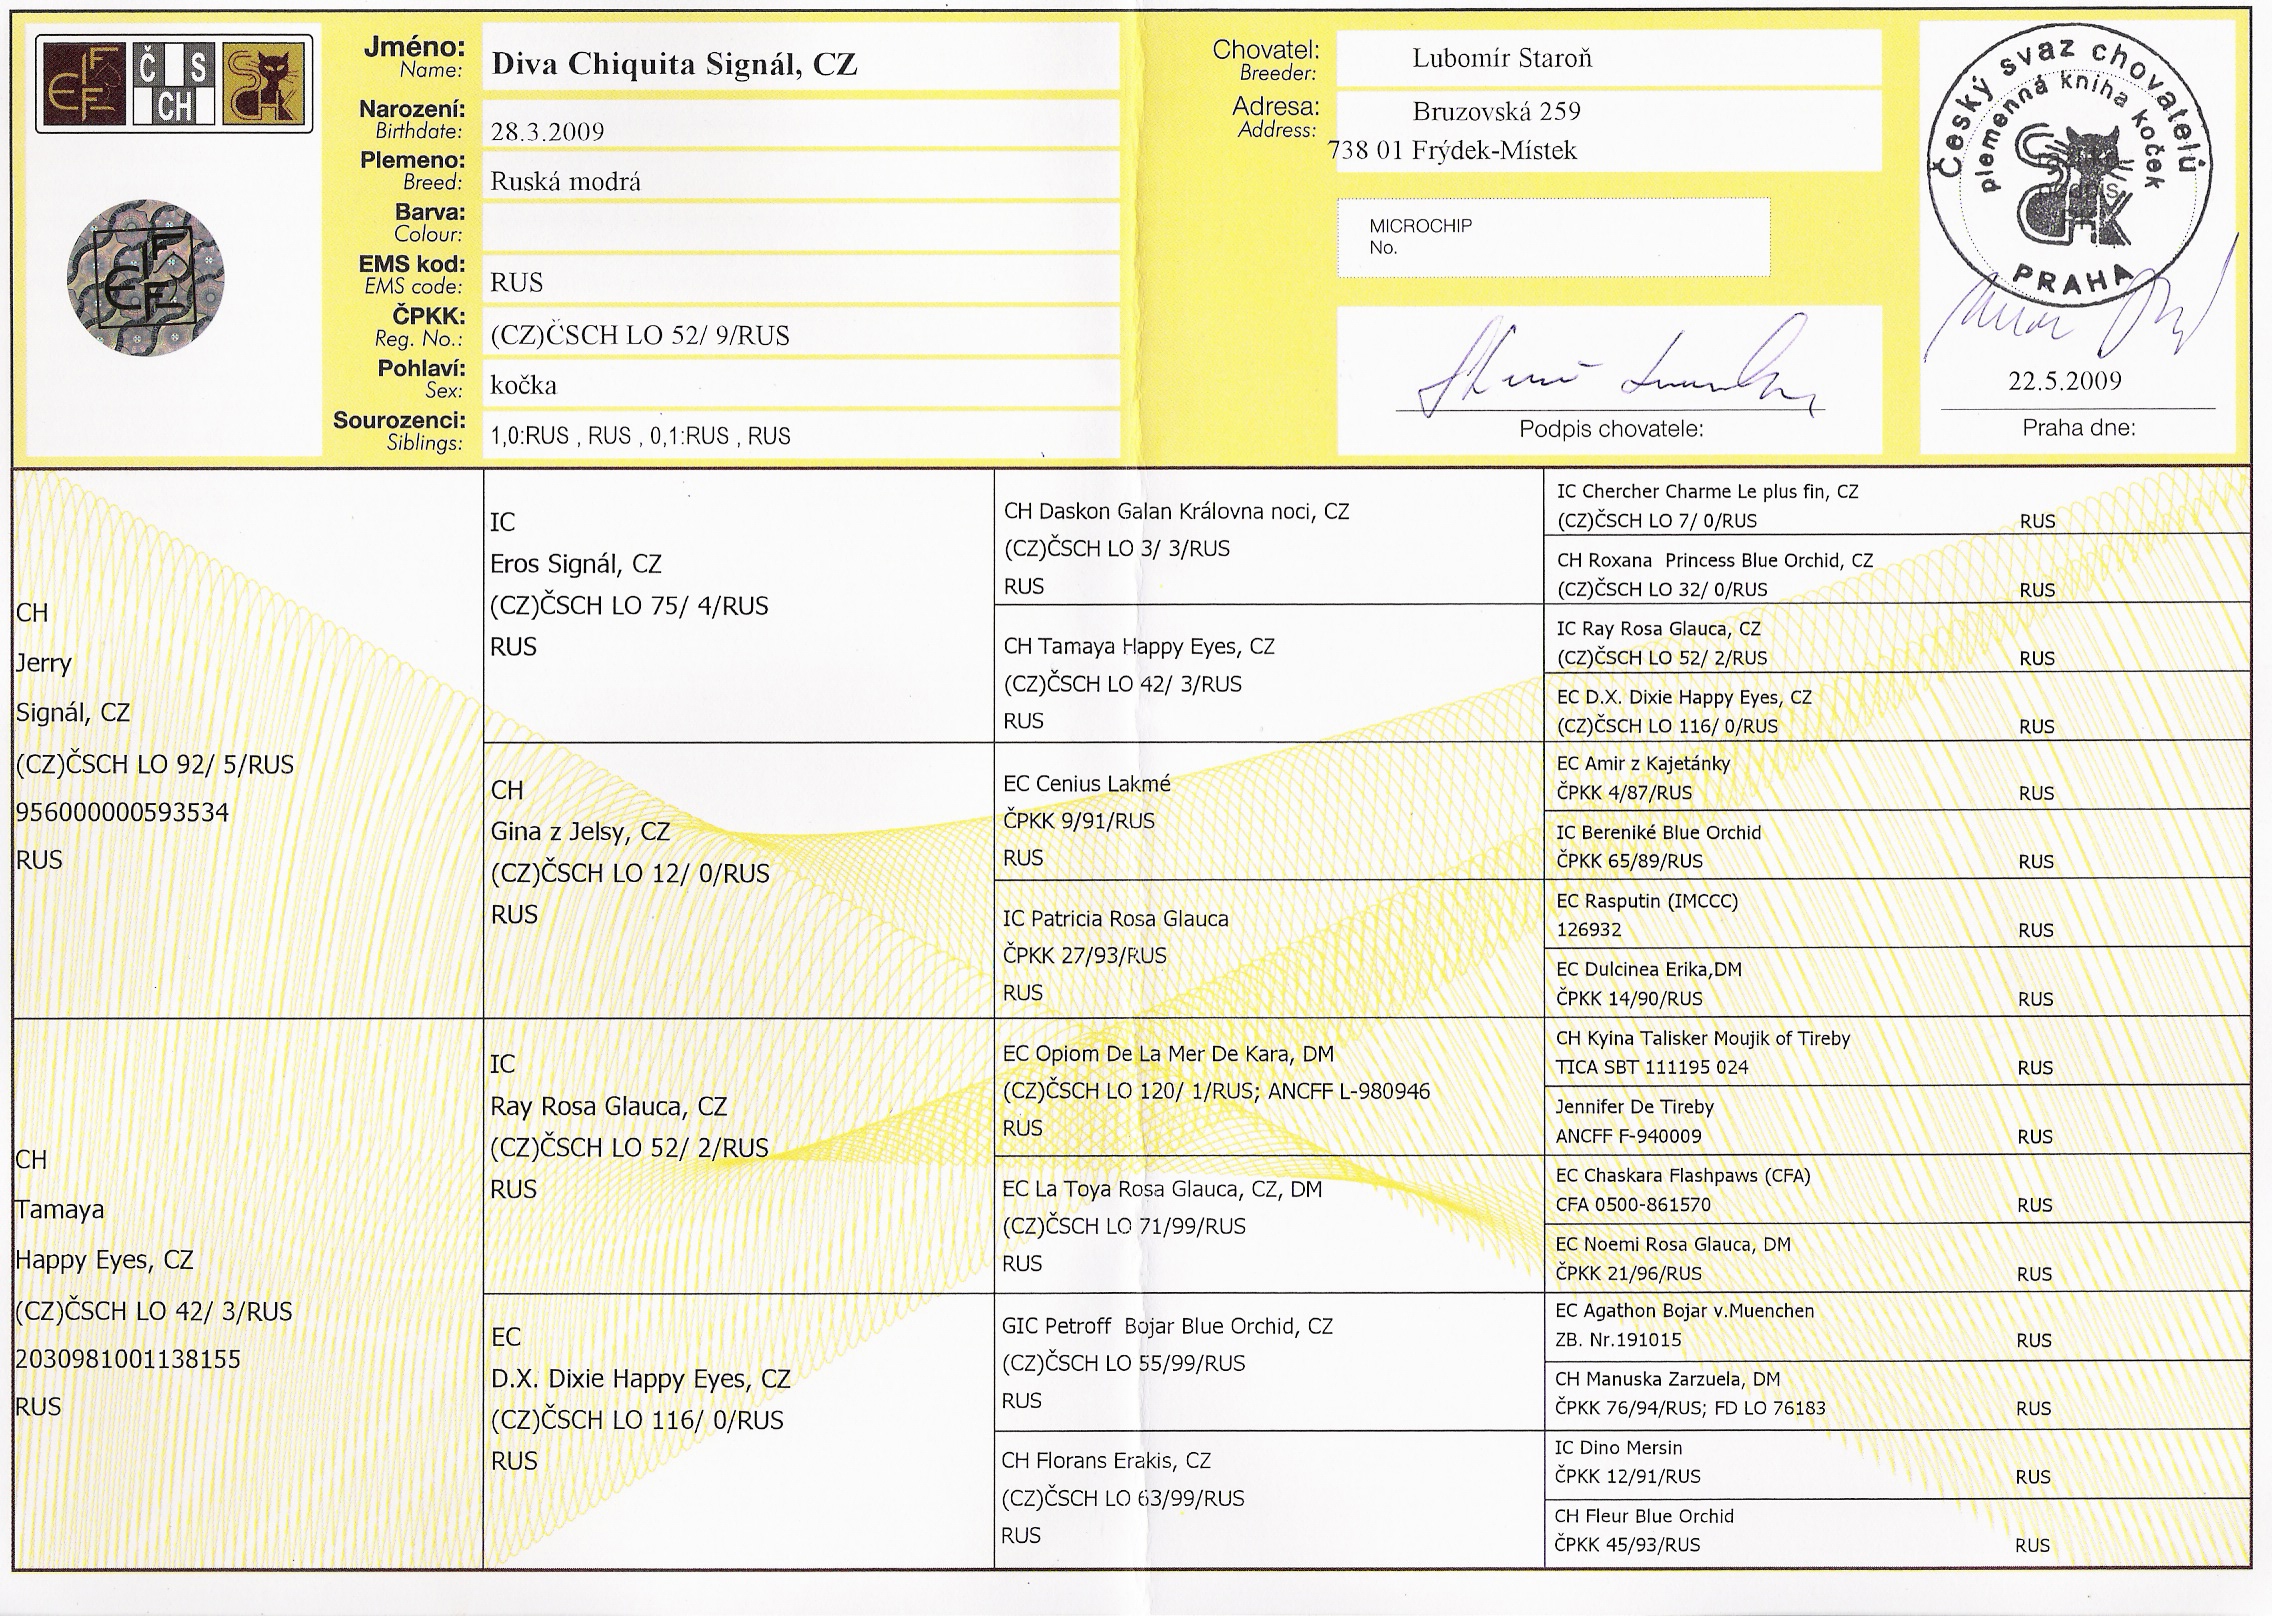 Č S
CH
FIFE
Jméno:
Name:
Diva Chiquita Signál, CZ
Narození:
Birthdate:
28.3.2009
Plemeno:
Breed:
Ruská modrá
Barva:
Colour:
EMS kod:
EMS code:
RUS
ČPKK:
Reg. No.:
(CZ)ČSCH LO 52/ 9/RUS
Pohlaví:
Sex:
kočka
Sourozenci:
Siblings:
1,0:RUS , RUS , 0,1:RUS , RUS
Chovatel:
Breeder:
Lubomír Staroň
Adresa:
Address:
Bruzovská 259
738 01 Frýdek-Místek
MICROCHIP
No.
Podpis chovatele:
Český svaz chovatelů
plemenná kniha koček
PRAHA
22.5.2009
Praha dne:
CH
Jerry
Signál, CZ
(CZ)ČSCH LO 92/ 5/RUS
956000000593534
RUS
CH
Tamaya
Happy Eyes, CZ
(CZ)ČSCH LO 42/ 3/RUS
2030981001138155
RUS
IC
Eros Signál, CZ
(CZ)ČSCH LO 75/ 4/RUS
RUS
CH
Gina z Jelsy, CZ
(CZ)ČSCH LO 12/ 0/RUS
RUS
IC
Ray Rosa Glauca, CZ
(CZ)ČSCH LO 52/ 2/RUS
RUS
EC
D.X. Dixie Happy Eyes, CZ
(CZ)ČSCH LO 116/ 0/RUS
RUS
CH Daskon Galan Královna noci, CZ
(CZ)ČSCH LO 3/ 3/RUS
RUS
CH Tamaya Happy Eyes, CZ
(CZ)ČSCH LO 42/ 3/RUS
RUS
EC Cenius Lakmé
ČPKK 9/91/RUS
RUS
IC Patricia Rosa Glauca
ČPKK 27/93/RUS
RUS
EC Opiom De La Mer De Kara, DM
(CZ)ČSCH LO 120/ 1/RUS; ANCFF L-980946
RUS
EC La Toya Rosa Glauca, CZ, DM
(CZ)ČSCH LO 71/99/RUS
RUS
GIC Petroff Bojar Blue Orchid, CZ
(CZ)ČSCH LO 55/99/RUS
RUS
CH Florans Erakis, CZ
(CZ)ČSCH LO 63/99/RUS
RUS
IC Chercher Charme Le plus fin, CZ
(CZ)ČSCH LO 7/ 0/RUS RUS
CH Roxana Princess Blue Orchid, CZ
(CZ)ČSCH LO 32/ 0/RUS RUS
IC Ray Rosa Glauca, CZ
(CZ)ČSCH LO 52/ 2/RUS RUS
EC D.X. Dixie Happy Eyes, CZ
(CZ)ČSCH LO 116/ 0/RUS RUS
EC Amir z Kajetánky
ČPKK 4/87/RUS RUS
IC Bereniké Blue Orchid
ČPKK 65/89/RUS RUS
EC Rasputin (IMCCC)
126932 RUS
EC Dulcinea Erika,DM
ČPKK 14/90/RUS RUS
CH Kyina Talisker Moujik of Tireby
TICA SBT 111195 024 RUS
Jennifer De Tireby
ANCFF F-940009 RUS
EC Chaskara Flashpaws (CFA)
CFA 0500-861570 RUS
EC Noemi Rosa Glauca, DM
ČPKK 21/96/RUS RUS
EC Agathon Bojar v.Muenchen
ZB. Nr.191015 RUS
CH Manuska Zarzuela, DM
ČPKK 76/94/RUS; FD LO 76183 RUS
IC Dino Mersin
ČPKK 12/91/RUS RUS
CH Fleur Blue Orchid
ČPKK 45/93/RUS RUS